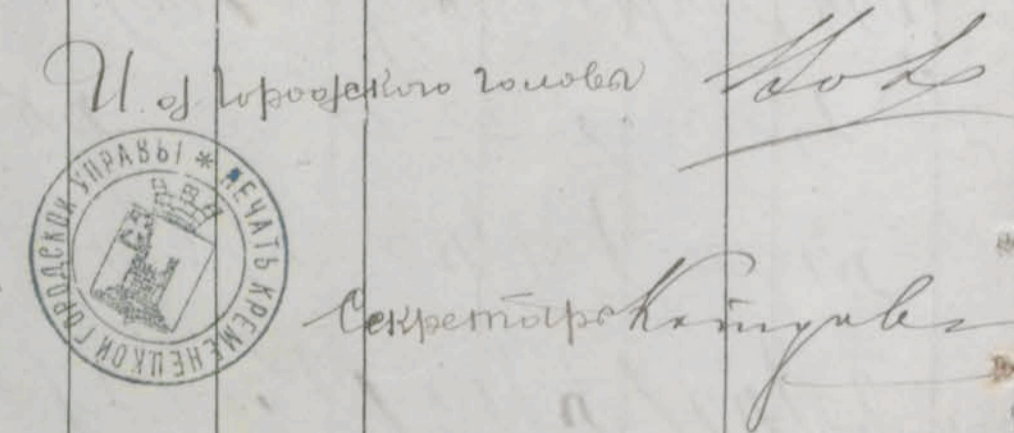 И. об Городского головы
ПЕЧАТЬ КРЕМЕНЕЦКОЙ ГОРОДСКОЙ УПРАВЫ *
Секретарь